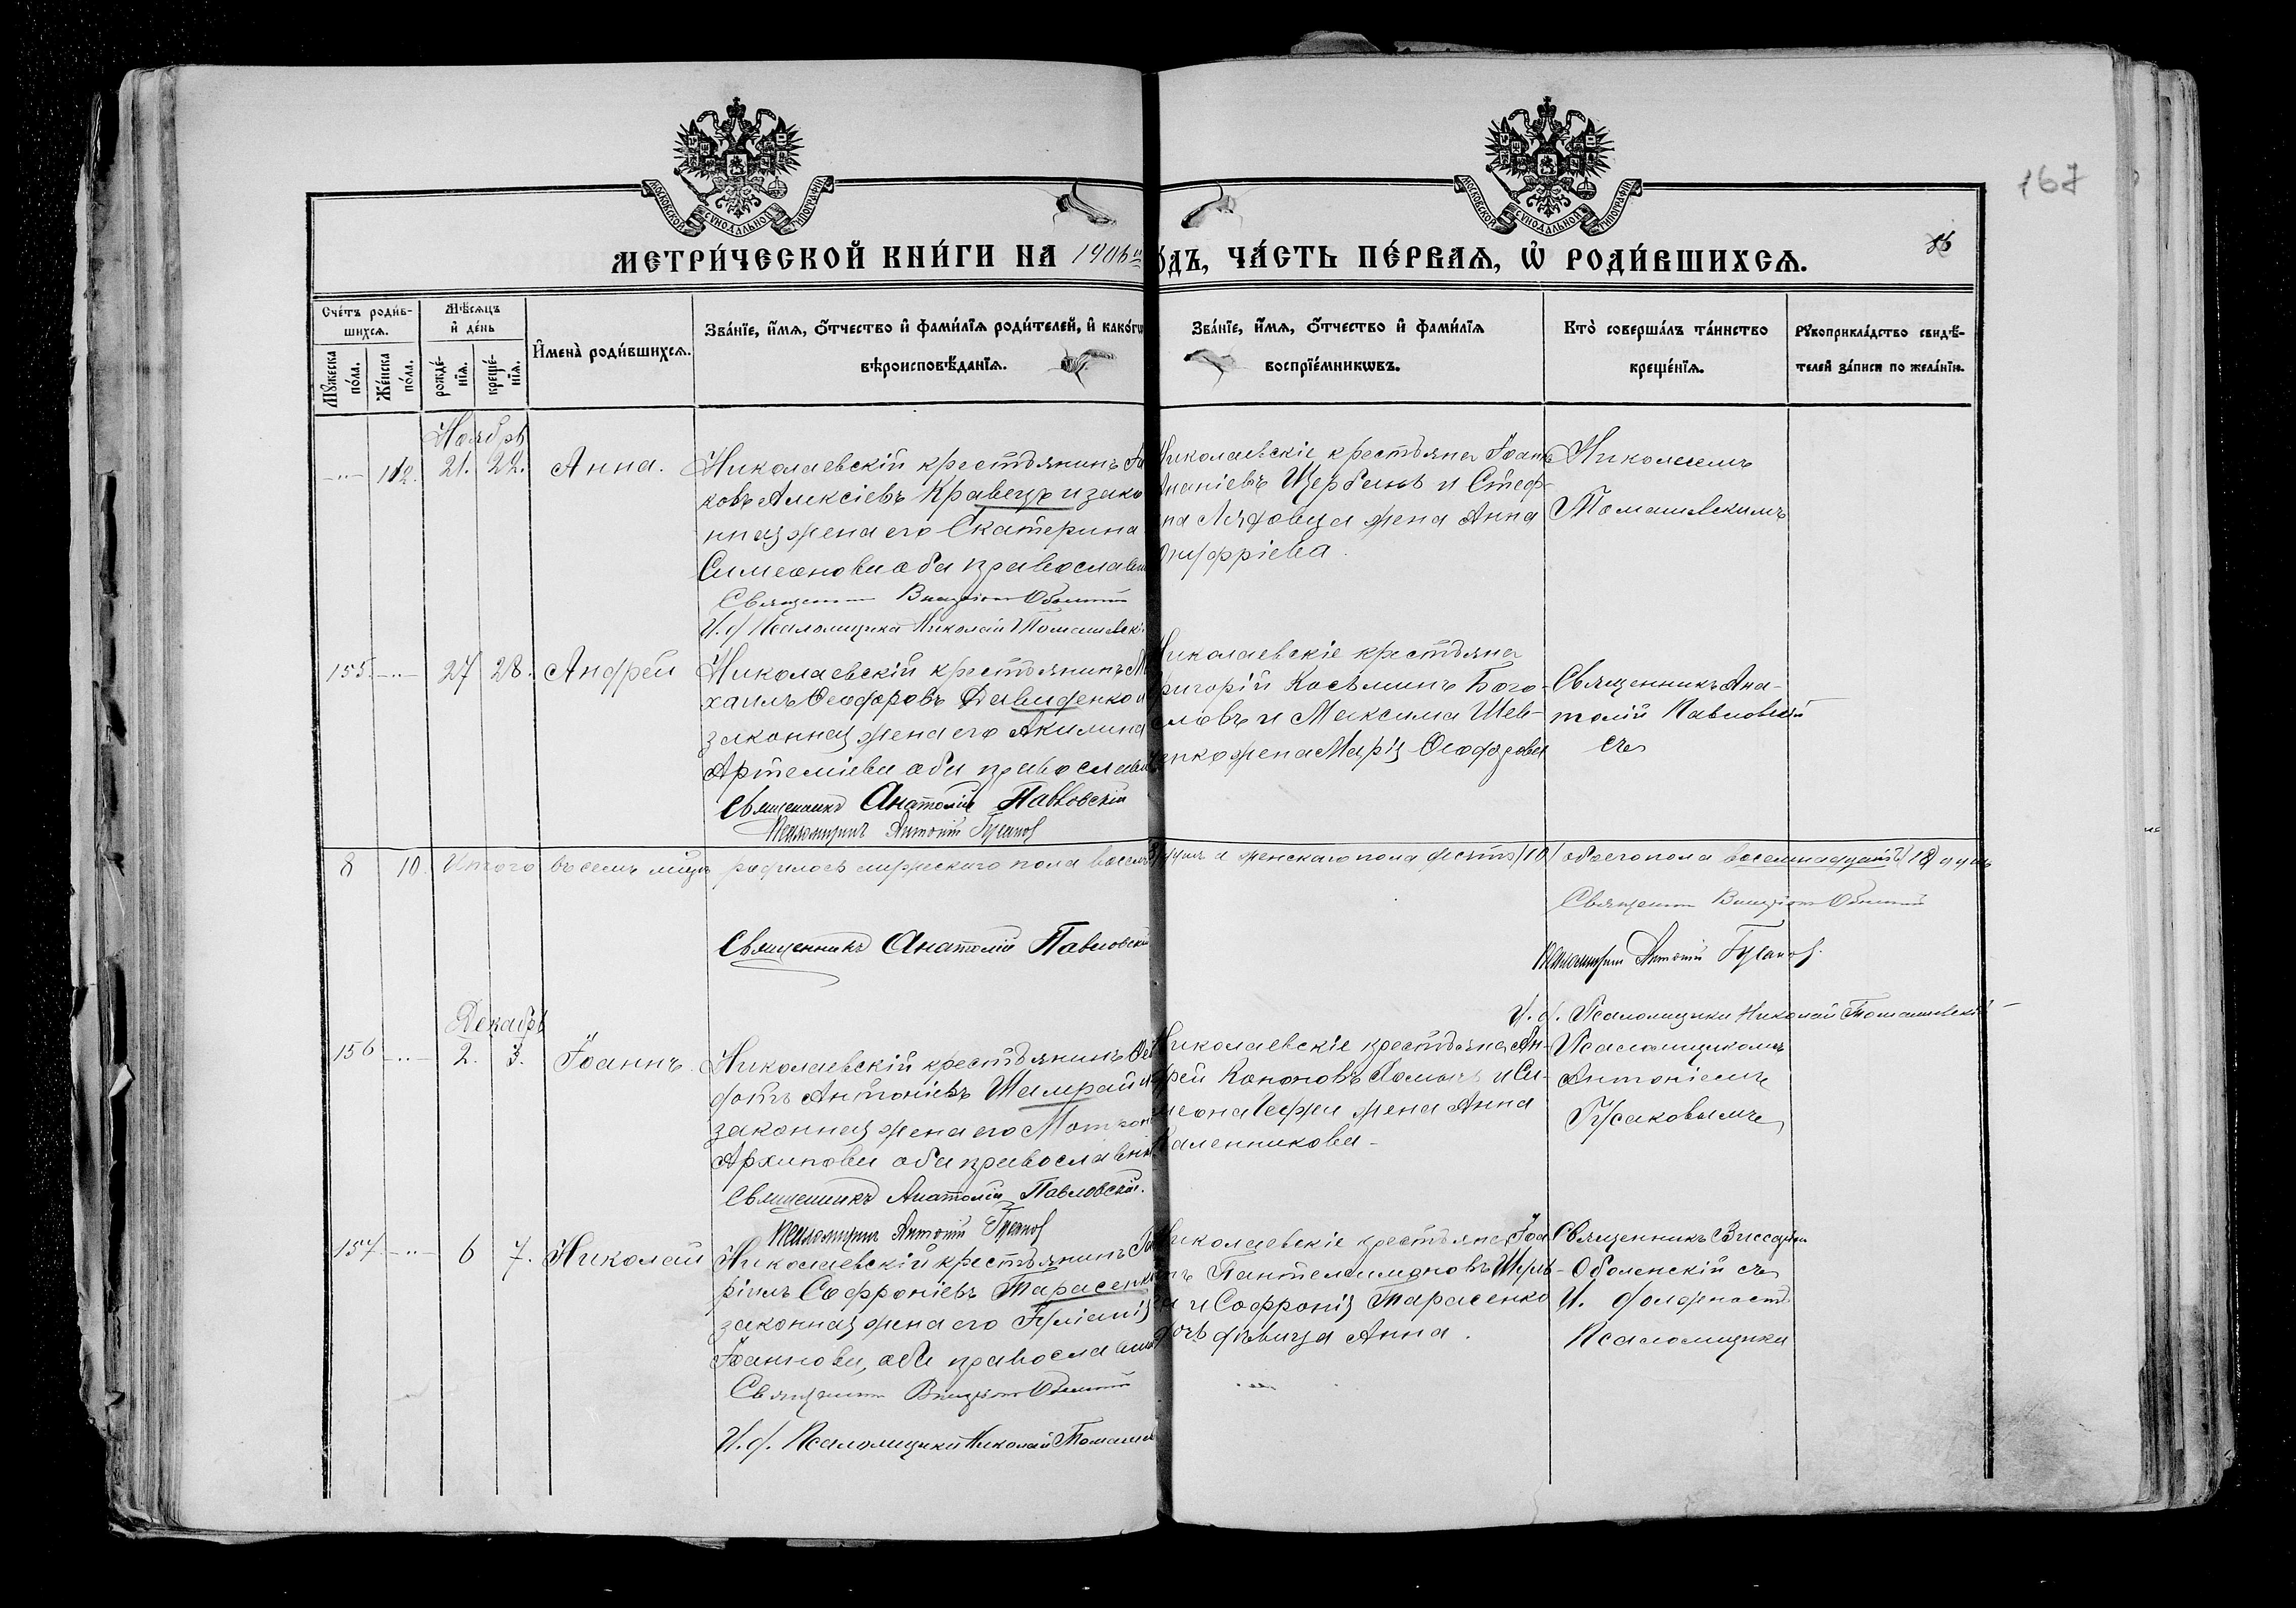 167
МОСКОВСКОЙ СѴНОДАЛЬНОЙ ТИПОГРАФІИ
МОСКОВСКОЙ СѴНОДАЛЬНОЙ ТИПОГРАФІИ
МЕТРИ́ЧЕСКОЙ КНИ́ГИ НА 1906 й
О́ДЪ, ЧА́СТЬ ПЕ́РВАЯ, Ѡ҆ РОДИ́ВШИХСЯ.
86
Сче́тъ роди́вшихся.
Мꙋжеска по́ла.
Же́нска по́ла.
Мѣ́сяцъ и҆ де́нь
рожде́нїя.
креще́нїя.
И҆мена̀ роди́вшихся.
Зва́нїе, и҆́мя, ѻ҆́тчество и҆ фами́лїя роди́телей, и҆ како́гѡ
вѣроисповѣ́данїя.
Зва́нїе, и҆́мя, ѻ҆́тчество и҆ фами́лїя
воспрїе́мникѡвъ.
Кто̀ соверша́лъ та́инство
креще́нїя.
Рꙋкоприкла́дство свидѣ́-
телей за́писи по жела́нїю.
Ноябрь
112. 21. 22. Анна.
Николаевскій крестьянинъ
ковъ Алексіевъ Кравецъ и зако
нная жена его Екатерина
Симеонова оба православн
Священникъ Виссаріонъ Оболенскій
И. д. Псаломщика Николай Томашевскі
Николаевскіе крестьяне Іоанъ
Ананіевъ Щербакъ и Стеф-
на Ляховца жена Анна
Онуфріева.
Николаемъ
Томашевскимъ
155. 27 28. Андрей
Николаевскій крестьянинъ Ми
хаилъ Ѳеодоровъ Давиденко и
законная жена его Акилина
Артеміева оба православн
Священникъ Анатолій Павловскій
Псаломщикъ Антоній Гусаков
Николаевскіе крестьяне
ригорій Косьминъ Бого-
словъ и Максима Шев-
ченко жена Марія Ѳеодорова
Священникъ Ана-
толій Павловскій
съ
8 10. Итого въ семъ мѣцѣ родилось мужескаго пола восемь
душъ а женскаго пола десять /10/ обоего пола восемнадцать /18/ душъ
Священникъ Анатолій Павловскій
Священникъ Виссаріонъ Оболенскій
Псаломщикъ Антоній Гусаков.
И. д. Псаломщика Николай Томашевскій
Декабрь
156 2. 3. Іоаннъ.
Николаевскій крестьянинъ Ѳео
дотъ Антоніевъ Шамрай и
законная жена его Матрон
Архипова оба православны
Священникъ Анатолій Павловскій.
Псаломщикъ Антоній Гусаков
Николаевскіе крестьяне Ан-
дрей Кононовъ и Си-
меона жена Анна
Каленникова
Псаломщикомъ
Антоніемъ
Гусаковымъ
157 6 7. Николай
Николаевскій крестьянинъ Гав
ріилъ Софроніевъ Тарасенко
законная жена его Іуліанія
Іоаннова, оба православн
Священникъ Виссаріонъ Оболенскій
И. д. Псаломщика Николай Томашев
Николаевскіе крестьяне Іоа
нъ Пантелеимоновъ Шуль-
и Софронія Тарасенко
дочь дѣвица Анна.
Священникъ Виссаріон
Оболенскій съ
И. должность
Псаломщика